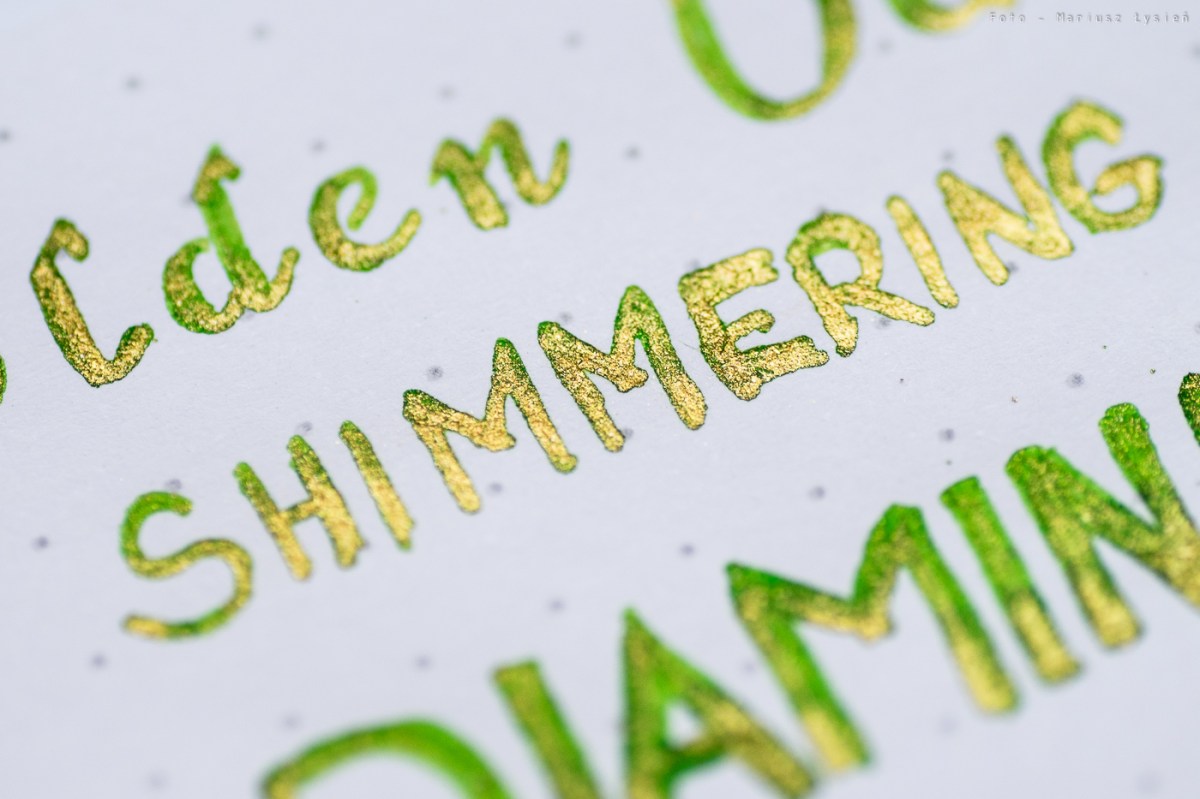 Foto - Mariusz Łysień
lden
SHIMMERING
DIAMIN